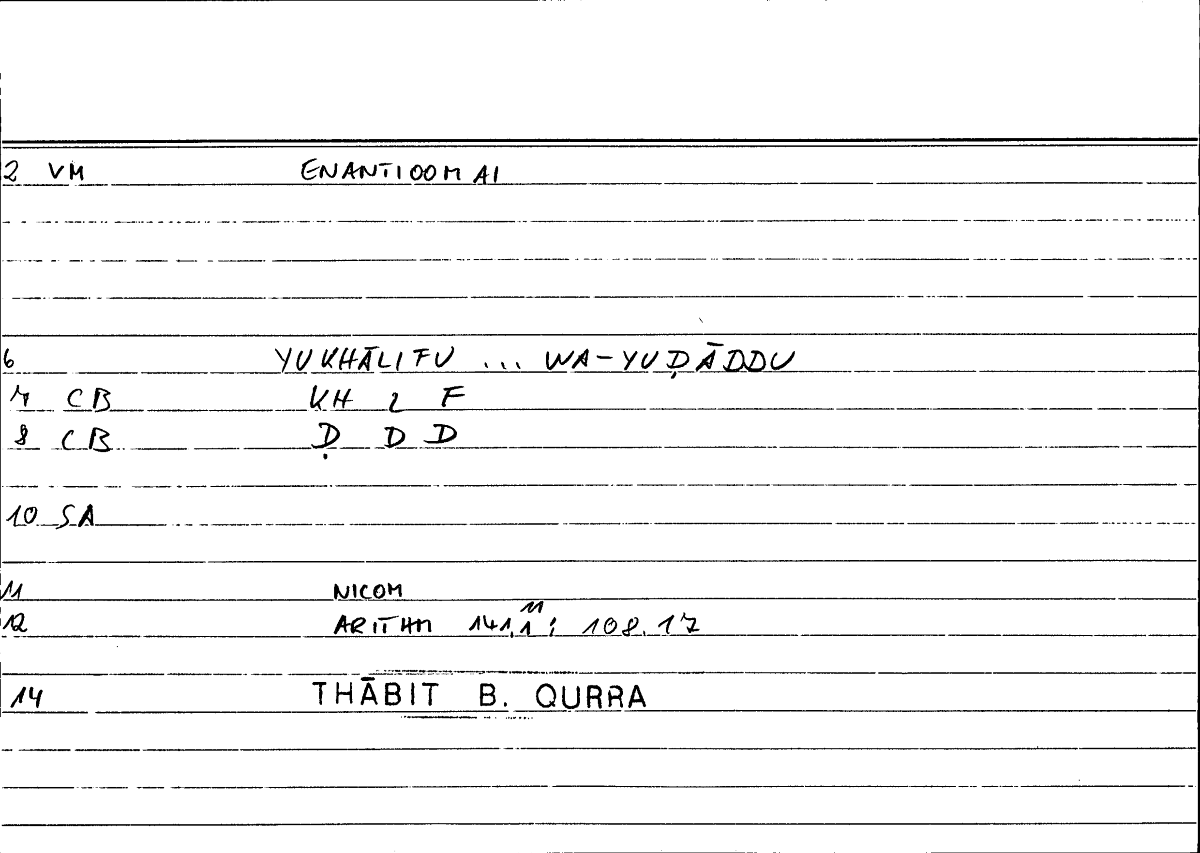 2 VM ENANTIOOMAI
6 YUKHĀLIFU ... WA-YUḌĀDDU
7 CB KH L F
8 CB Ḍ D D
10 SA
11 NICOM
11
12 ARITHM 141,1; 108.17
14 THĀBIT B. QURRA